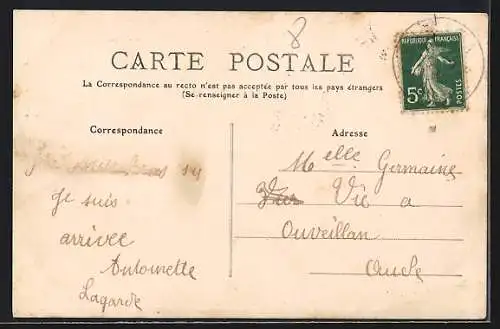 8
CARTE POSTALE
RÉPUBLIQUE FRANÇAISE
5c
POSTES
La Correspondance au recto n'est pas acceptée par tous les pays étrangers
(Se renseigner à la Poste)
Correspondance
Adresse
Melle Germaine
Vie a
Ouveillan
Aude
Je suis
arrivee
Antoinette
Lagarde